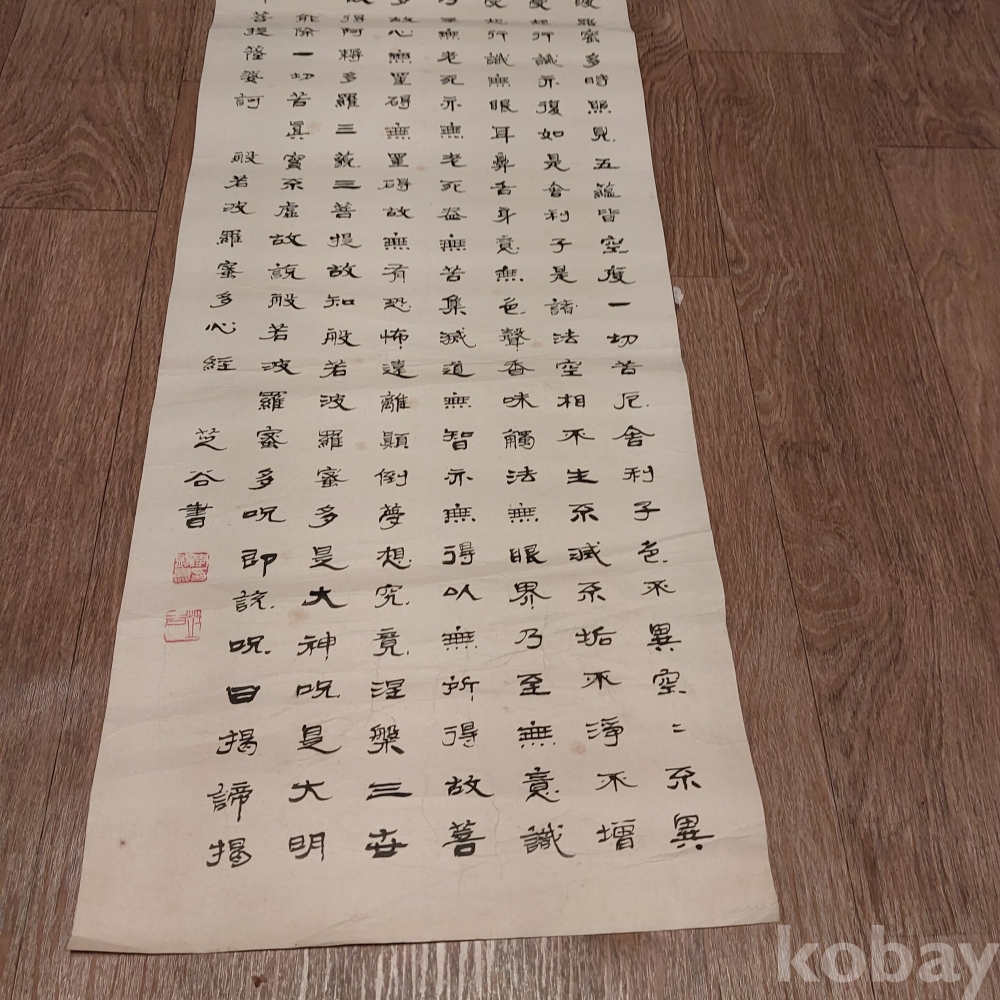 波羅蜜多時照見五蘊皆空度一切苦厄舍利子色不異空〻不異
受想行識亦復如是舍利子是諸法空相不生不滅不垢不淨不增
受想行識無眼耳鼻舌身意無色聲香味觸法無眼界乃至無意識
乃至無老死亦無老死盡無苦集滅道無智亦無得以無所得故菩
多故心無罣碍無罣碍故無有恐怖遠離顛倒夢想究竟涅槃三世
故得阿耨多羅三藐三菩提故知般若波羅蜜多是大神呪是大明
能除一切苦真實不虛故說般若波羅蜜多呪即說呪曰揭諦揭
菩提薩婆訶 般若波羅蜜多心經
芝谷書
kobay